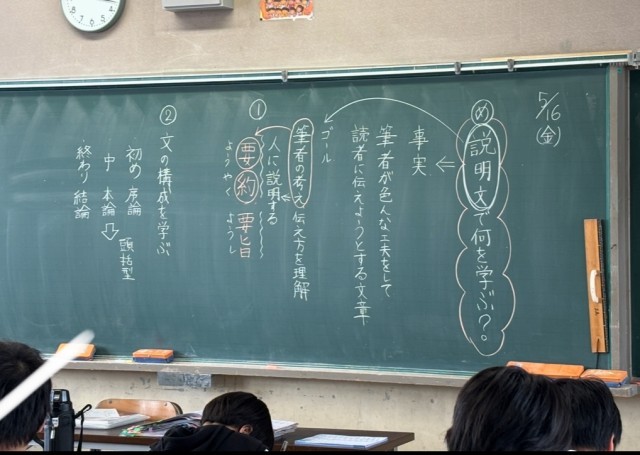 5/16(金)
め 説明文で何を学ぶ?
事実
筆者が色んな工夫をして
読者に伝えようとする文章
ゴール
筆者の考え 伝え方を理解
① 人に説明する
要約 要旨
ようやく ようし
② 文の構成を学ぶ
初め 序論
中 本論
頭括型
終わり 結論